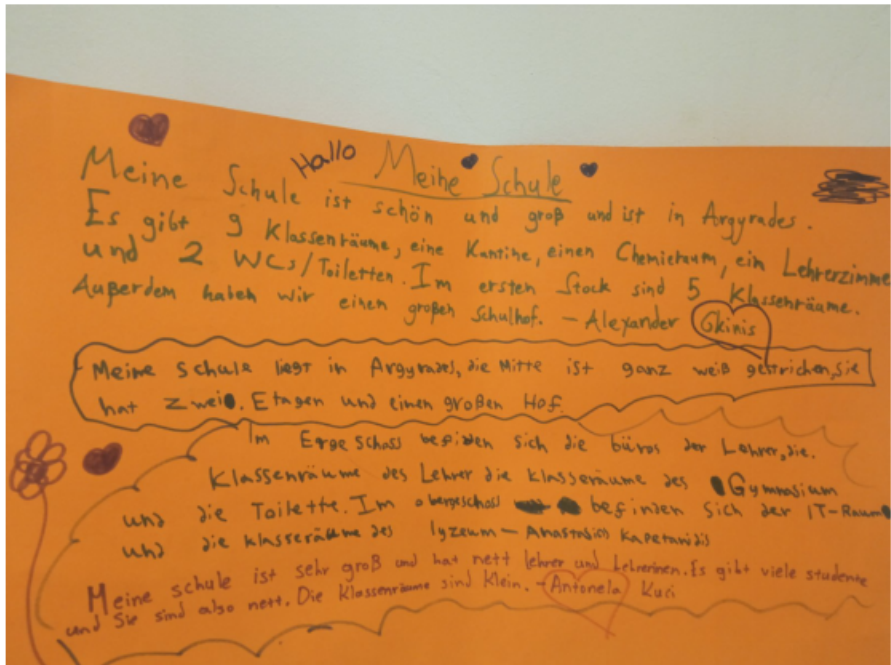 Hallo Meine Schule
Meine Schule ist schön und groß und ist in Argyrades.
Es gibt 9 Klassenräume, eine Kantine, einen Chemieraum, ein Lehrerzimme
und 2 WCs/Toiletten. Im ersten Stock sind 5 Klassenräume.
Außerdem haben wir einen großen Schulhof. – Alexander Gkinis
Meine schule liegt in Argyrades, die Mitte ist ganz weiß gestrichen, sie
hat zwei. Etagen und einen großen Hof.
Im Ergeschoss befinden sich die büros der Lehrer, die.
Klassenräume des Lehrer die klasseräume des Gymnasium
und die Toilette. Im obergeschoss befinden sich der IT-Raum
und die klasseräume des lyzeum – Kapetanidis
Meine schule ist sehr groß und hat nett lehrer und lehrerinen. Es gibt viele studente
und Sie sind also nett. Die Klassenräume sind Klein. – Antonela Kuci